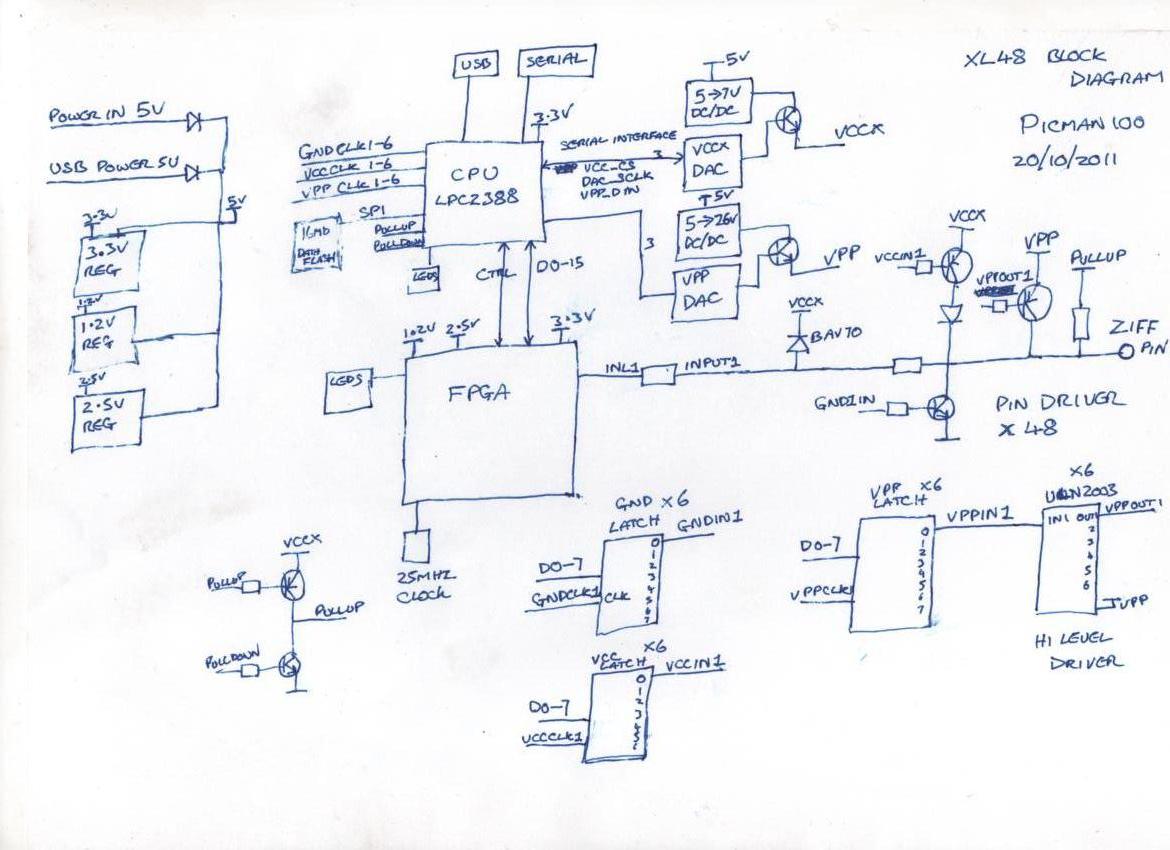 XL48 BLOCK
DIAGRAM
PICMAN100
20/10/2011
POWER IN 5V
USB POWER 5V
5V
3.3V
3.3V
REG
1.2V
1.2V
REG
2.5V
2.5V
REG
USB
SERIAL
3.3V
GNDCLK1-6
VCCCLK 1-6
VPP CLK 1-6
SPI
PULLUP
PULLDOWN
16MB
DATA
FLASH
CPU
LPC2388
LEDS
CTRL
D0-15
SERIAL INTERFACE
3
VCC_CS
DAC_SCLK
VPP_DIN
5V
5→7V
DC/DC
VCCX
DAC
VCCX
5V
5→26V
DC/DC
3
VPP
DAC
VPP
1.2V
2.5V
3.3V
LEDS
FPGA
25MHZ
CLOCK
INL1
INPUT1
VCCX
BAV70
VCCX
VCCIN1
VPP
VPPOUT1
PULLUP
ZIFF
PIN
GND1IN
PIN DRIVER
X 48
VCCX
PULLUP
PULLUP
PULLDOWN
GND X6
LATCH
GNDIN1
D0-7
GNDCLK1
CLK
0
1
2
3
4
5
6
7
VCC X6
LATCH
VCCIN1
D0-7
VCCCLK1
0
1
2
3
VPP X6
LATCH
VPPIN1
D0-7
VPPCLK1
0
1
2
3
4
5
6
7
X6
ULN2003
IN1 OUT1
VPPOUT1
2
3
4
5
6
VPP
HI LEVEL
DRIVER